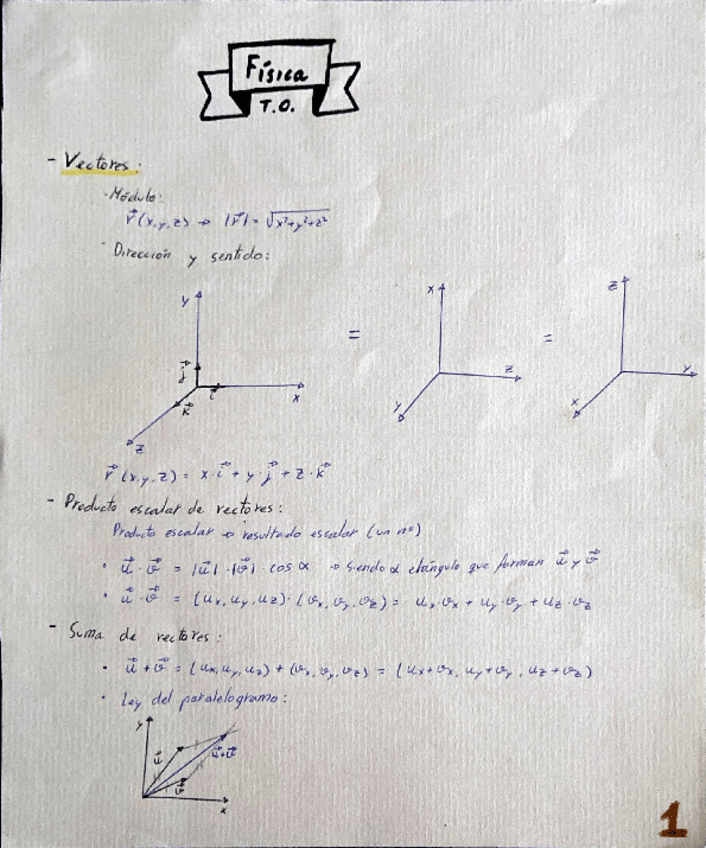 Física
T.O.
- Vectores:
· Módulo:
r⃗ (x,y,z) → |r⃗| = √x²+y²+z²
· Dirección y sentido:
y
j⃗
i⃗
k⃗
x
z
=
x
z
y
=
z
y
x
r⃗ (x,y,z) = x·i⃗ + y·j⃗ + z·k⃗
- Producto escalar de vectores:
Producto escalar → resultado escalar (un nº)
· u⃗ · v⃗ = |u⃗| · |v⃗| · cos α → siendo α el ángulo que forman u⃗ y v⃗
· u⃗ · v⃗ = (ux, uy, uz) · (vx, vy, vz) = ux·vx + uy·vy + uz·vz
- Suma de vectores:
· u⃗ + v⃗ = (ux, uy, uz) + (vx, vy, vz) = (ux+vx, uy+vy, uz+vz)
· Ley del paralelogramo:
y
u⃗
u⃗+v⃗
v⃗
x
1